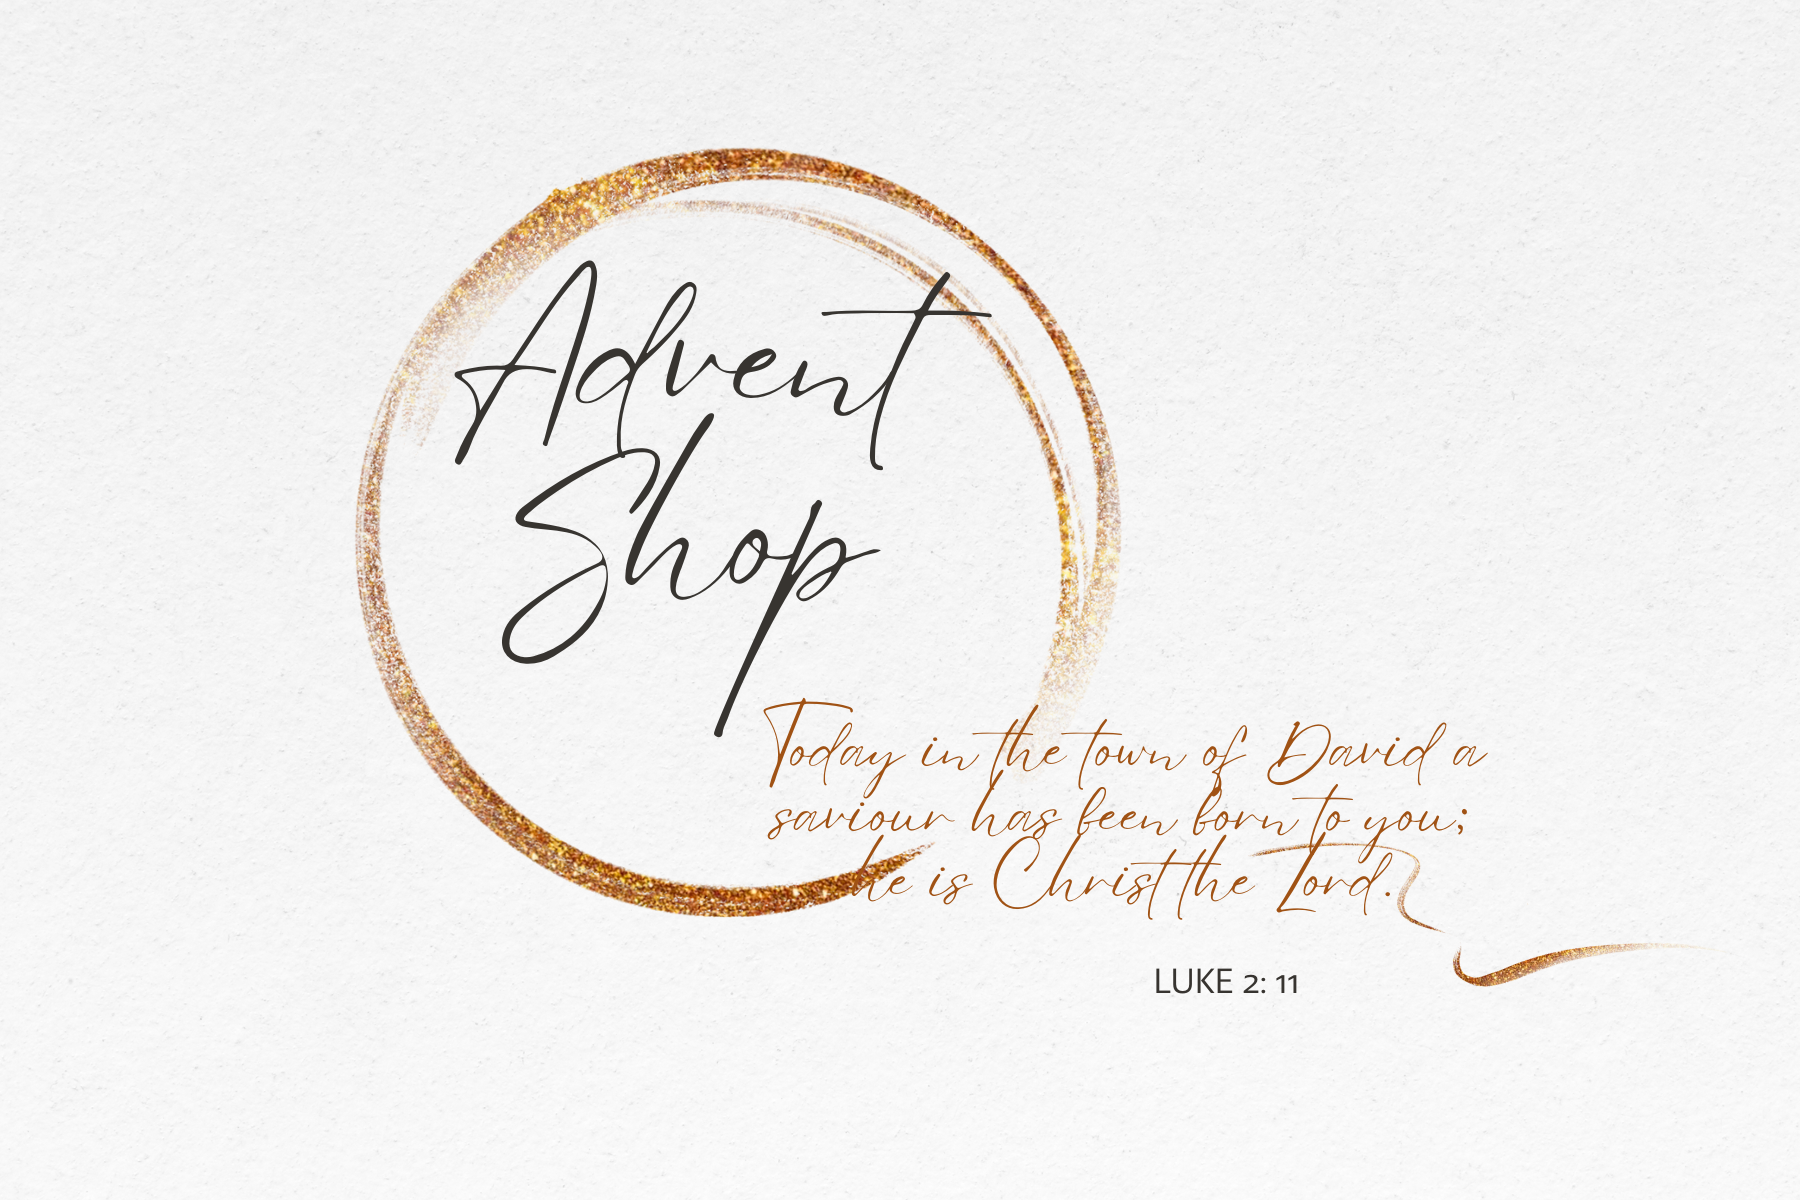 Advent
Shop
Today in the town of David a
saviour has been born to you;
he is Christ the Lord.
LUKE 2: 11